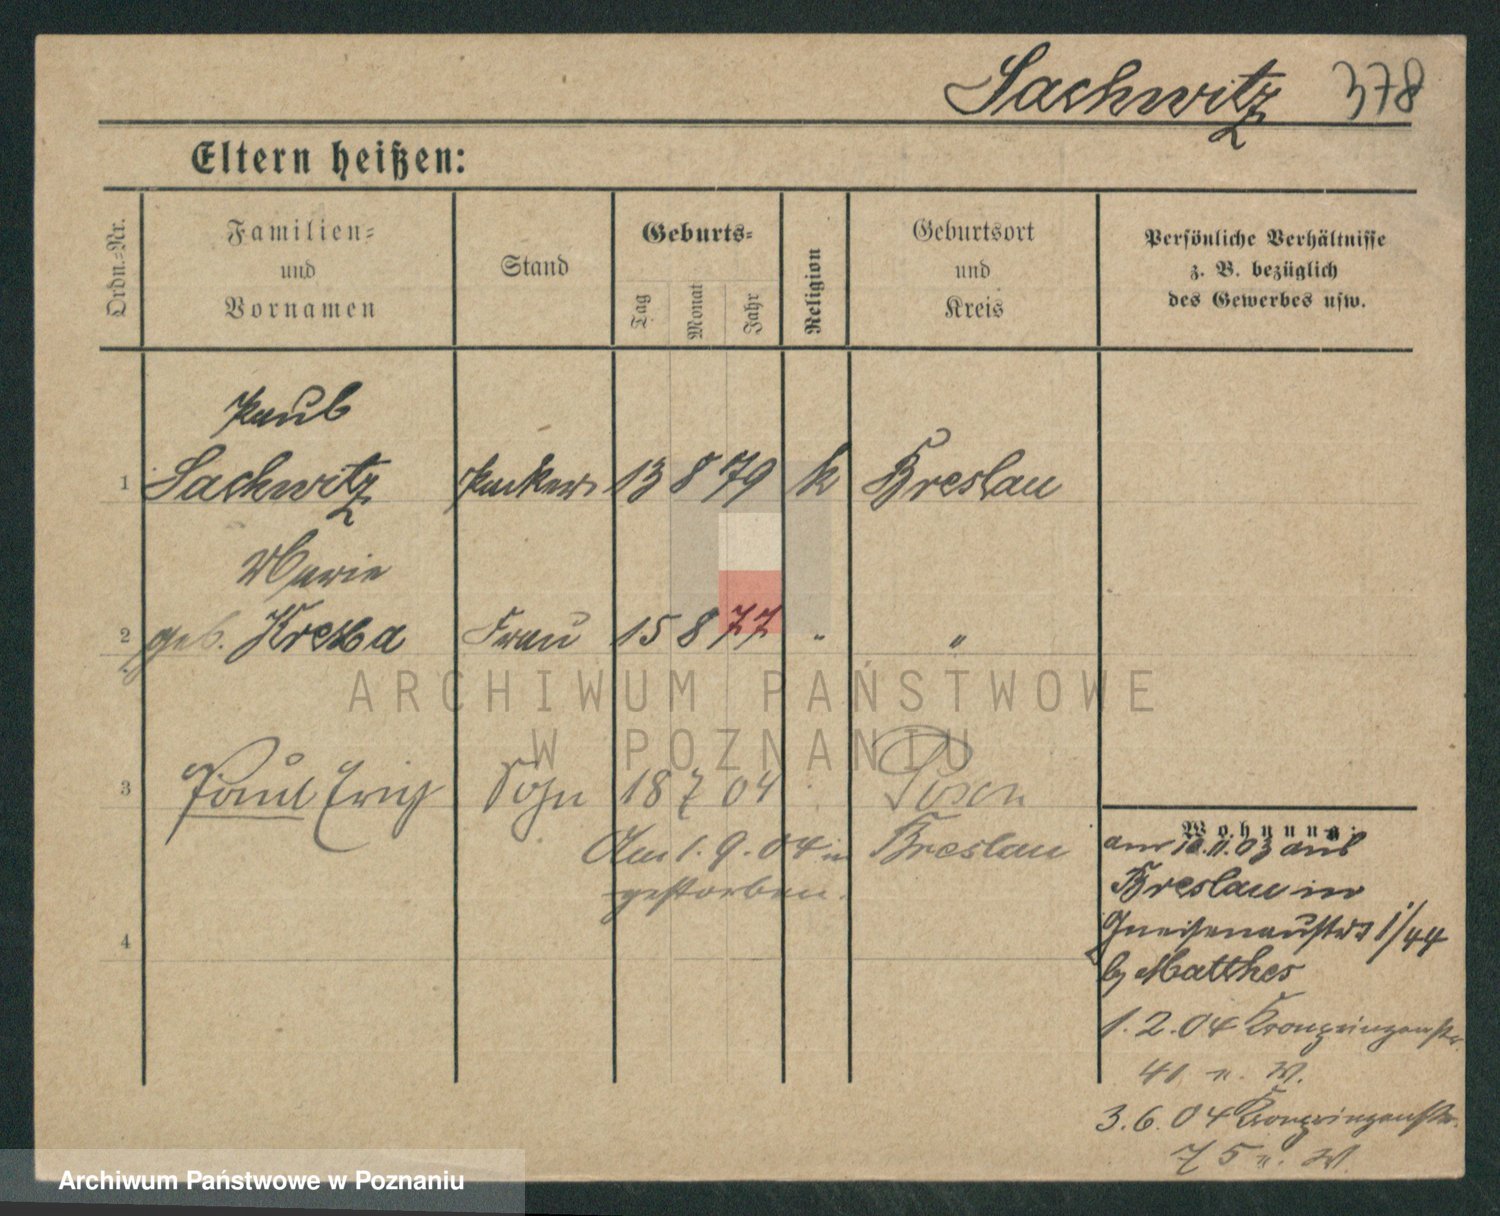 Sachwitz 378
Eltern heißen:
Ordn.-Nr.
Familien-
und
Vornamen
Stand
Geburts-
Tag
Monat
Jahr
Religion
Geburtsort
und
Kreis
Persönliche Verhältnisse
z. B. bezüglich
des Gewerbes usw.
Paul
1 Sachwitz 13 8 79 k Breslau
Marie
2 geb. Frau 15 8 77 " "
ARCHIWUM PAŃSTWOWE
W POZNANIU
3 Paul Erich Sohn 18 7 04 Posen
Am 1.9.04 in Breslau
gestorben.
4
Wohnung:
am 10.11.03 aus
Breslau in
Gneisenaustr 1/44
b/ Matthes
1.2.04 Kronprinzenstr.
41 n. W.
3.6.04 Kronprinzenstr.
75 n. W.
Archiwum Państwowe w Poznaniu